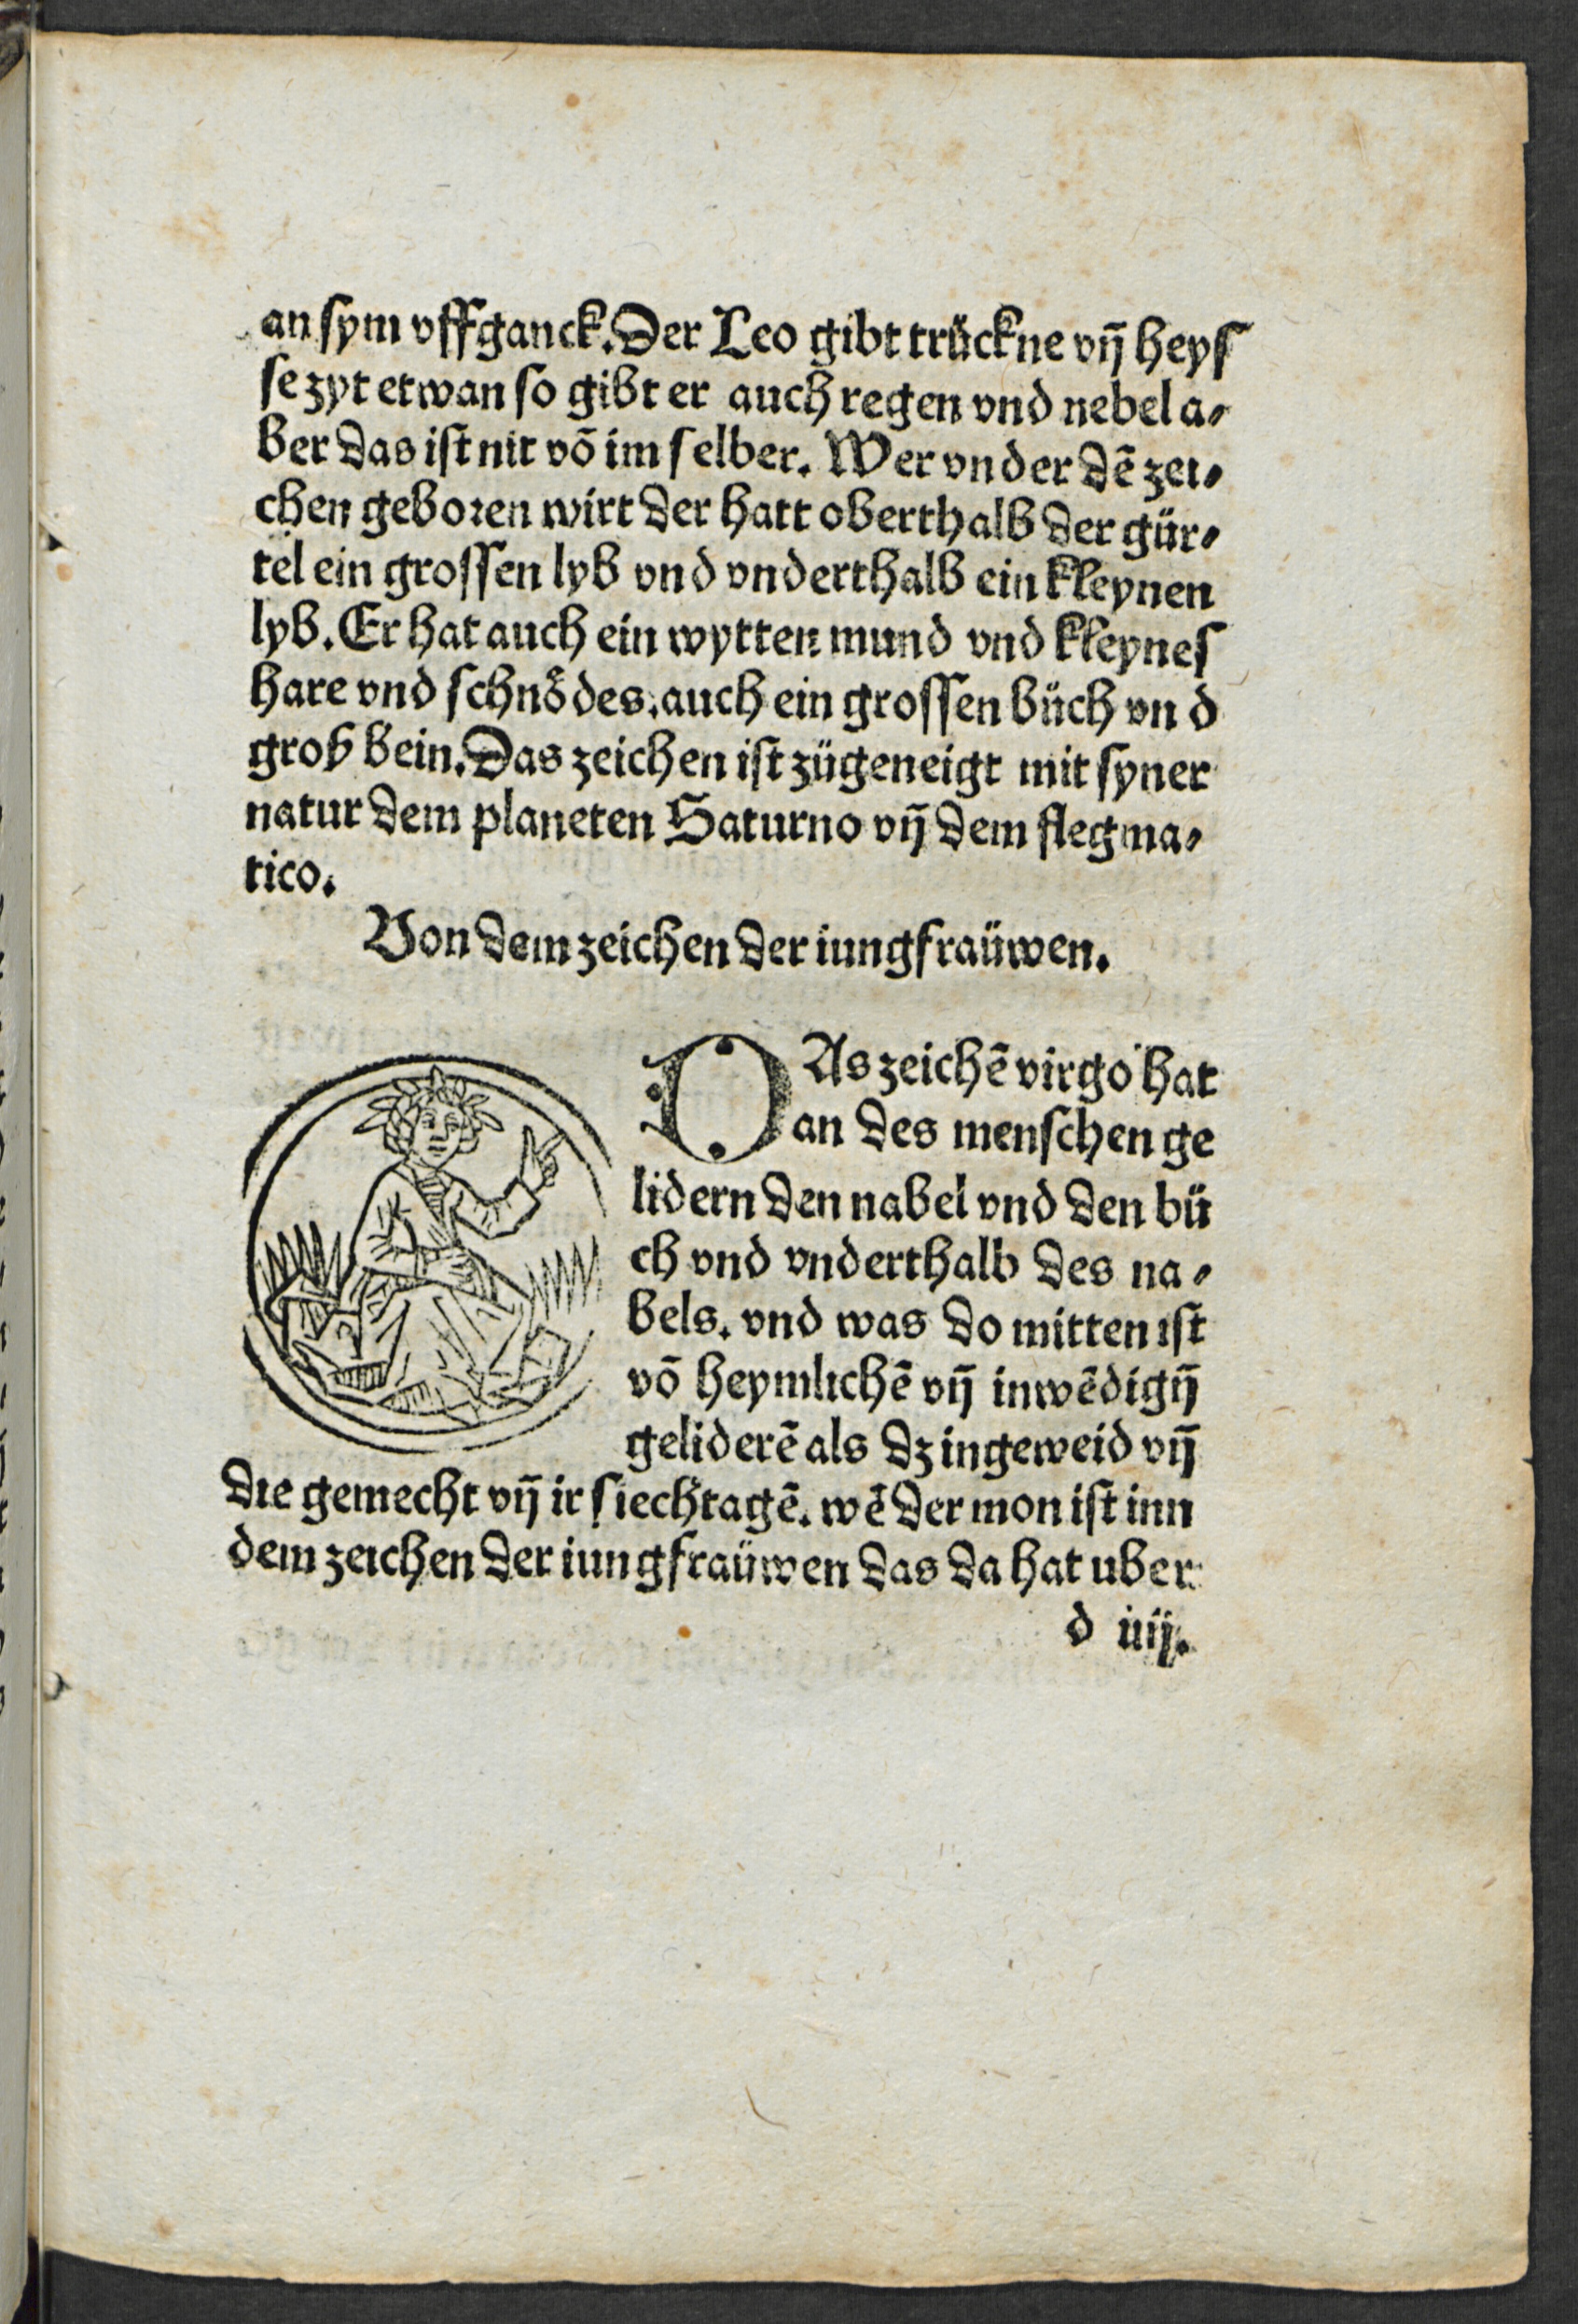 an sym vffganck. Der Leo gibt trückne vn̄ heyſ
ſe zyt etwan ſo gibt er auch regen vnd nebel a⸗
ber das iſt nit vō im ſelber. Wer vnder dē zei⸗
chen geboꝛen wirt der hatt oberthalb der gür⸗
tel ein groſſen lyb vnd vnderthalb ein kleynen
lyb. Er hat auch ein wytten mund vnd kleynes
hare vnd ſchnödes. auch ein groſſen büch vnd
groß bein. Das zeichen iſt zügeneigt mit ſyner
natur dem planeten Saturno vn̄ dem flegma⸗
tico.
Von dem zeichen der iungfraüwen.
DAs zeichē virgo hat
an des menſchen ge
lidern den nabel vnd den bü
ch vnd vnderthalb des na⸗
bels. vnd was do mitten iſt
vō heymlichē vn̄ inwēdign̄
geliderē als dz ingeweid vn̄
die gemecht vn̄ ir ſiechtagē. wē der mon iſt inn
dem zeichen der iungfraüwen das da hat uber
d iiij.